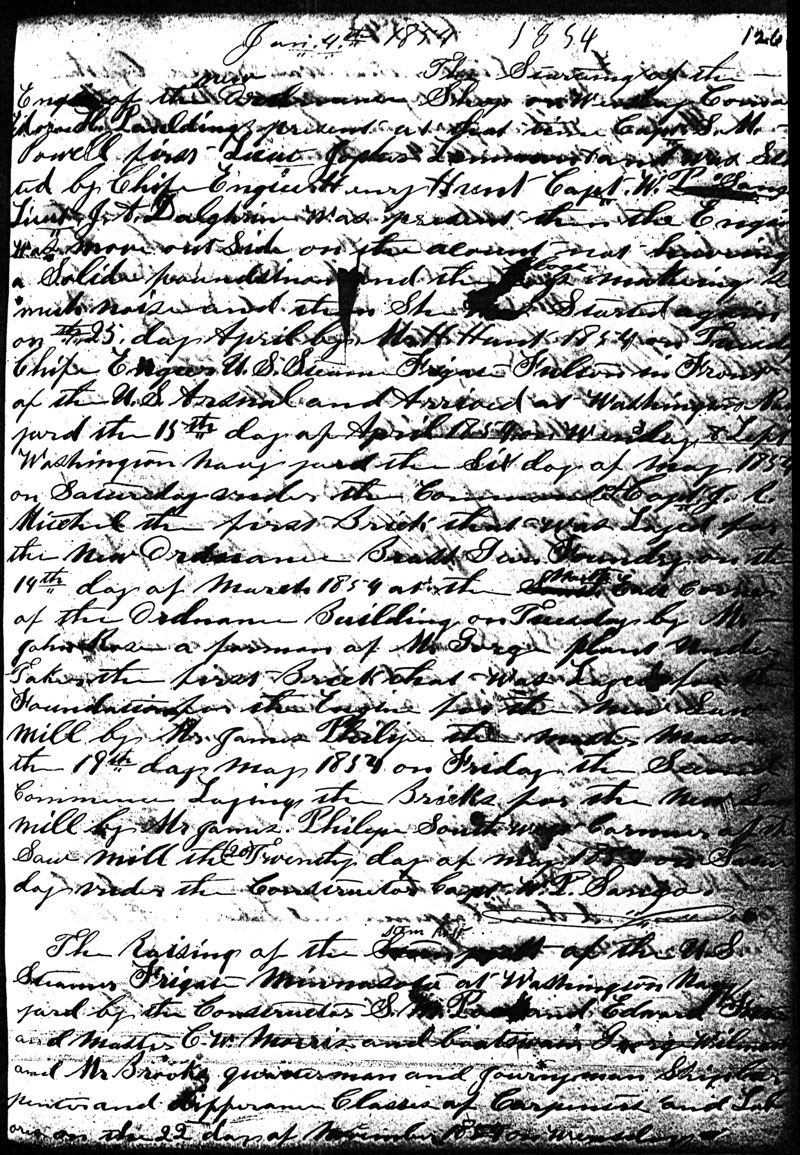 Jan. 4th 1854 1854 126
new The Starting of the
Engine of the Ordnance Shop on Wensday Como
Paulding present at that time Capt. S. M.
Powell first Lieut and was Star
ted by Chife Engieer Henry Hunt Capt. W. P. Sang
Lieut. J. A. Dalghrin was present then the Engi
was move out Side on the acount not having
a Solide poundation and the making to
much noise and then She was Started again
on the 25. day April by Mr H Hunt 1854 on Tuesd
Chife Engieer U. S. Steame Frigate Fulton in Front
of the U. S Arsnal and Arrived at Washington Nav
yard the 15th day of April 1854 on Wensday & Lept
Washington Navy yard the Six day of may 1854
on Saturday under the Command of Capt J. C
Mitchel the first Brick that was Layed for
the New Ordnance Brass Gun Foundry on the
14th day of March 1854 at the North East Corner
of the Ordnance Building on Tuesday by Mr
John Rose a forman of Mr Gorge plant Under
Taken the first Brick that was Layed for the
Foundation for the Engine for the New Saw
mill by Mr. James Philip the master Mason
the 19th day May 1854 on Friday the Second
Commence Laying the Bricks for the New Saw
mill by Mr James. Philip South west Corner of the
Saw mill the 20 Twenty day of may 1854 on Satur
day under the Constructor Capt. W. P. Sango.
The Raising of the Stern post of the U. S.
Steamer Frigate Minnasota at Washington Navy
yard by the Constructor S. M. Pook and Edward
and Master C. W. Morris and boatswain George Wilmuth
and Mr Brooks quarterman and Journyman Ship Car
penter and differance Classes of Carpenters and Lab
ores on the 22 day of November 1854 on Wensday